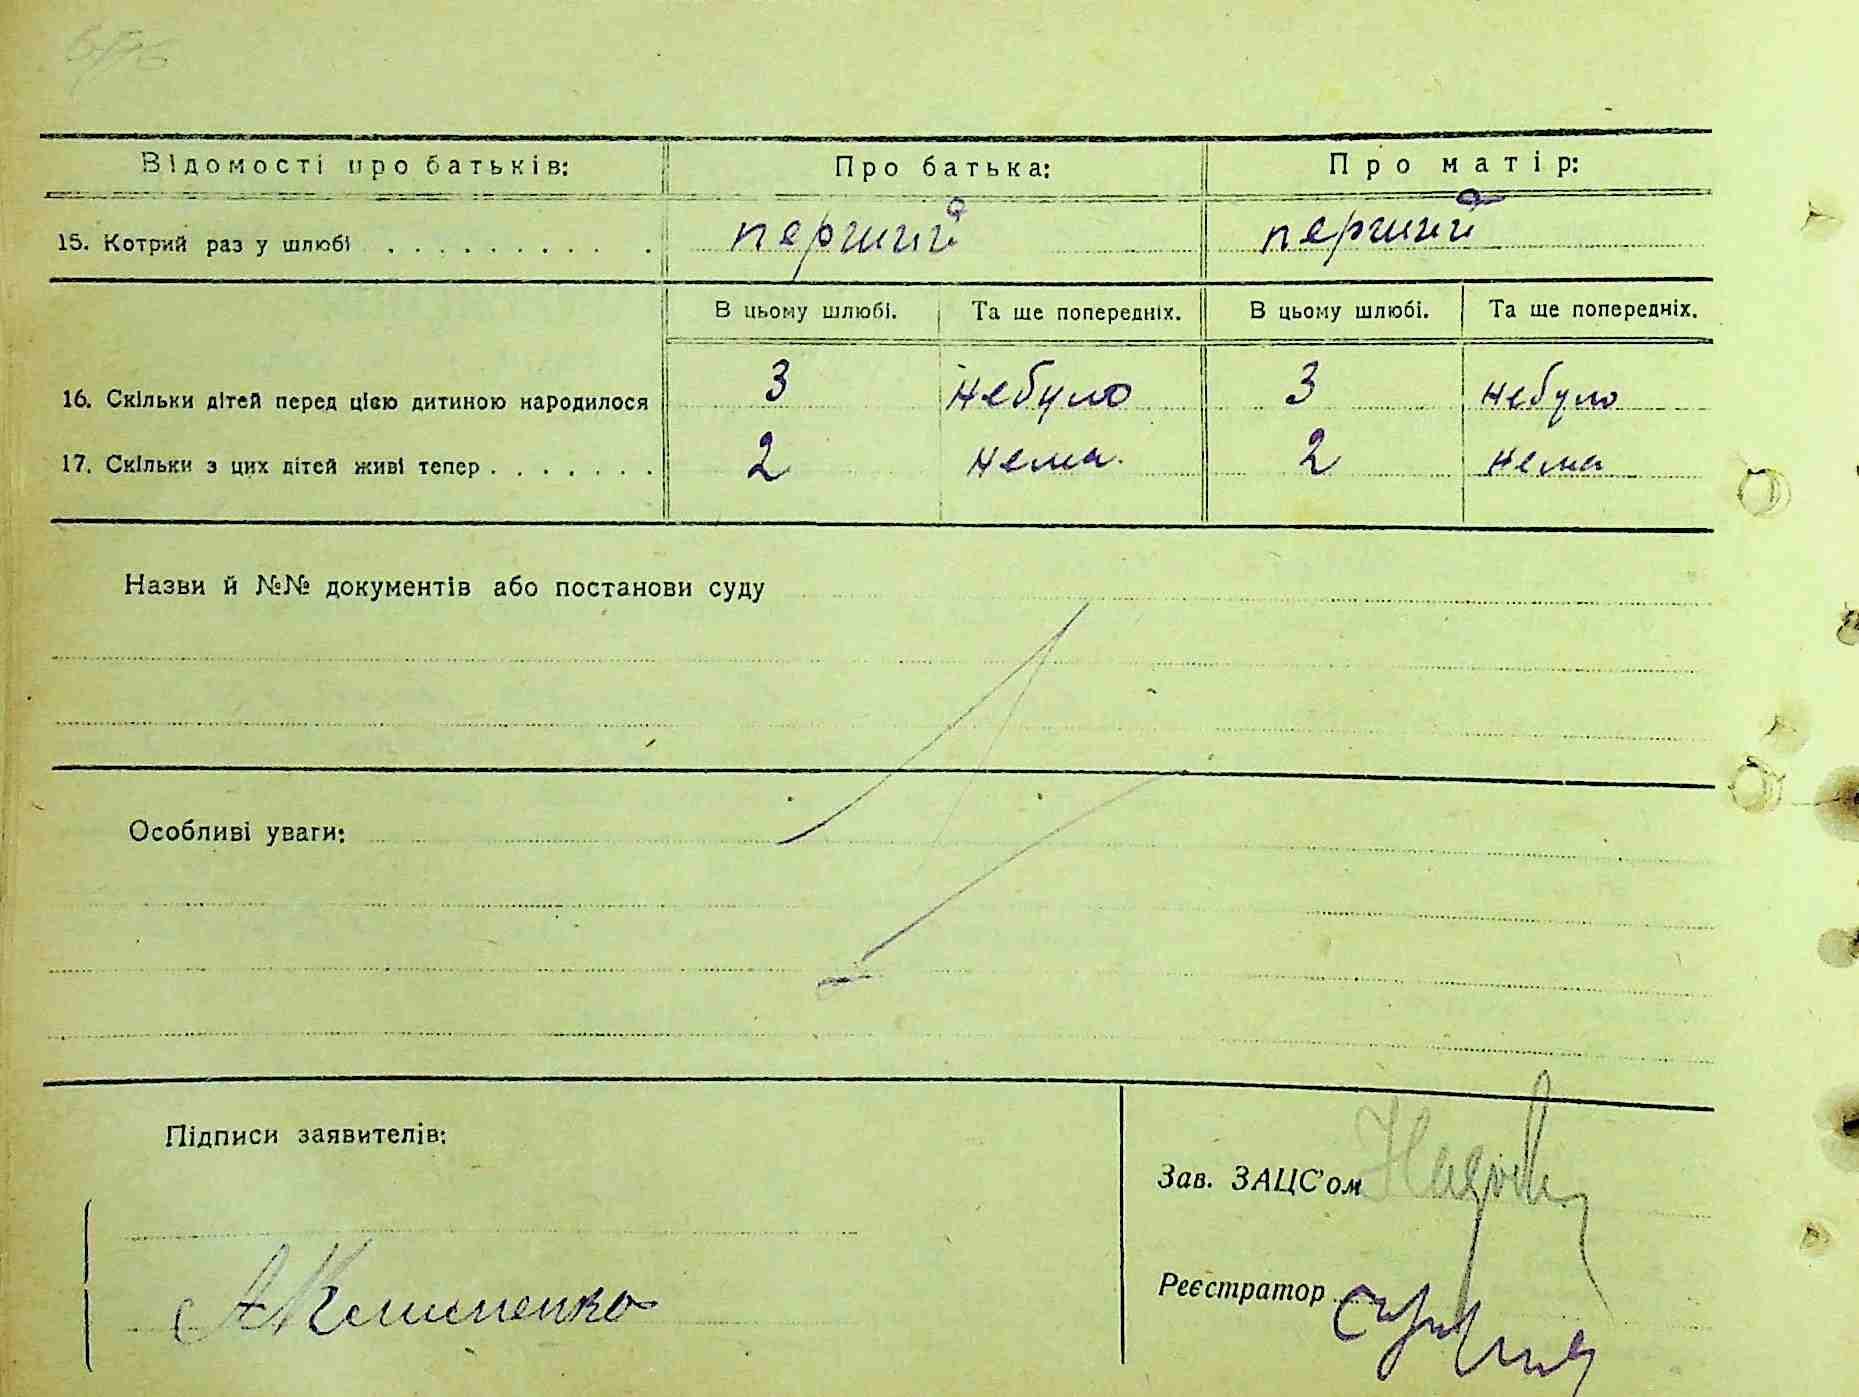 Відомості про батьків: Про батька: Про матір:
15. Котрий раз у шлюбі . . . . . . . . . . перший перший
В цьому шлюбі. Та ще попередніх. В цьому шлюбі. Та ще попередніх.
16. Скільки дітей перед цією дитиною народилося 3 небуло 3 небуло
17. Скільки з цих дітей живі тепер . . . . . . . 2 нема 2 нема
Назви й №№ документів або постанови суду
Особливі уваги:
Підписи заявителів:
Зав. ЗАЦС'ом
Реєстратор